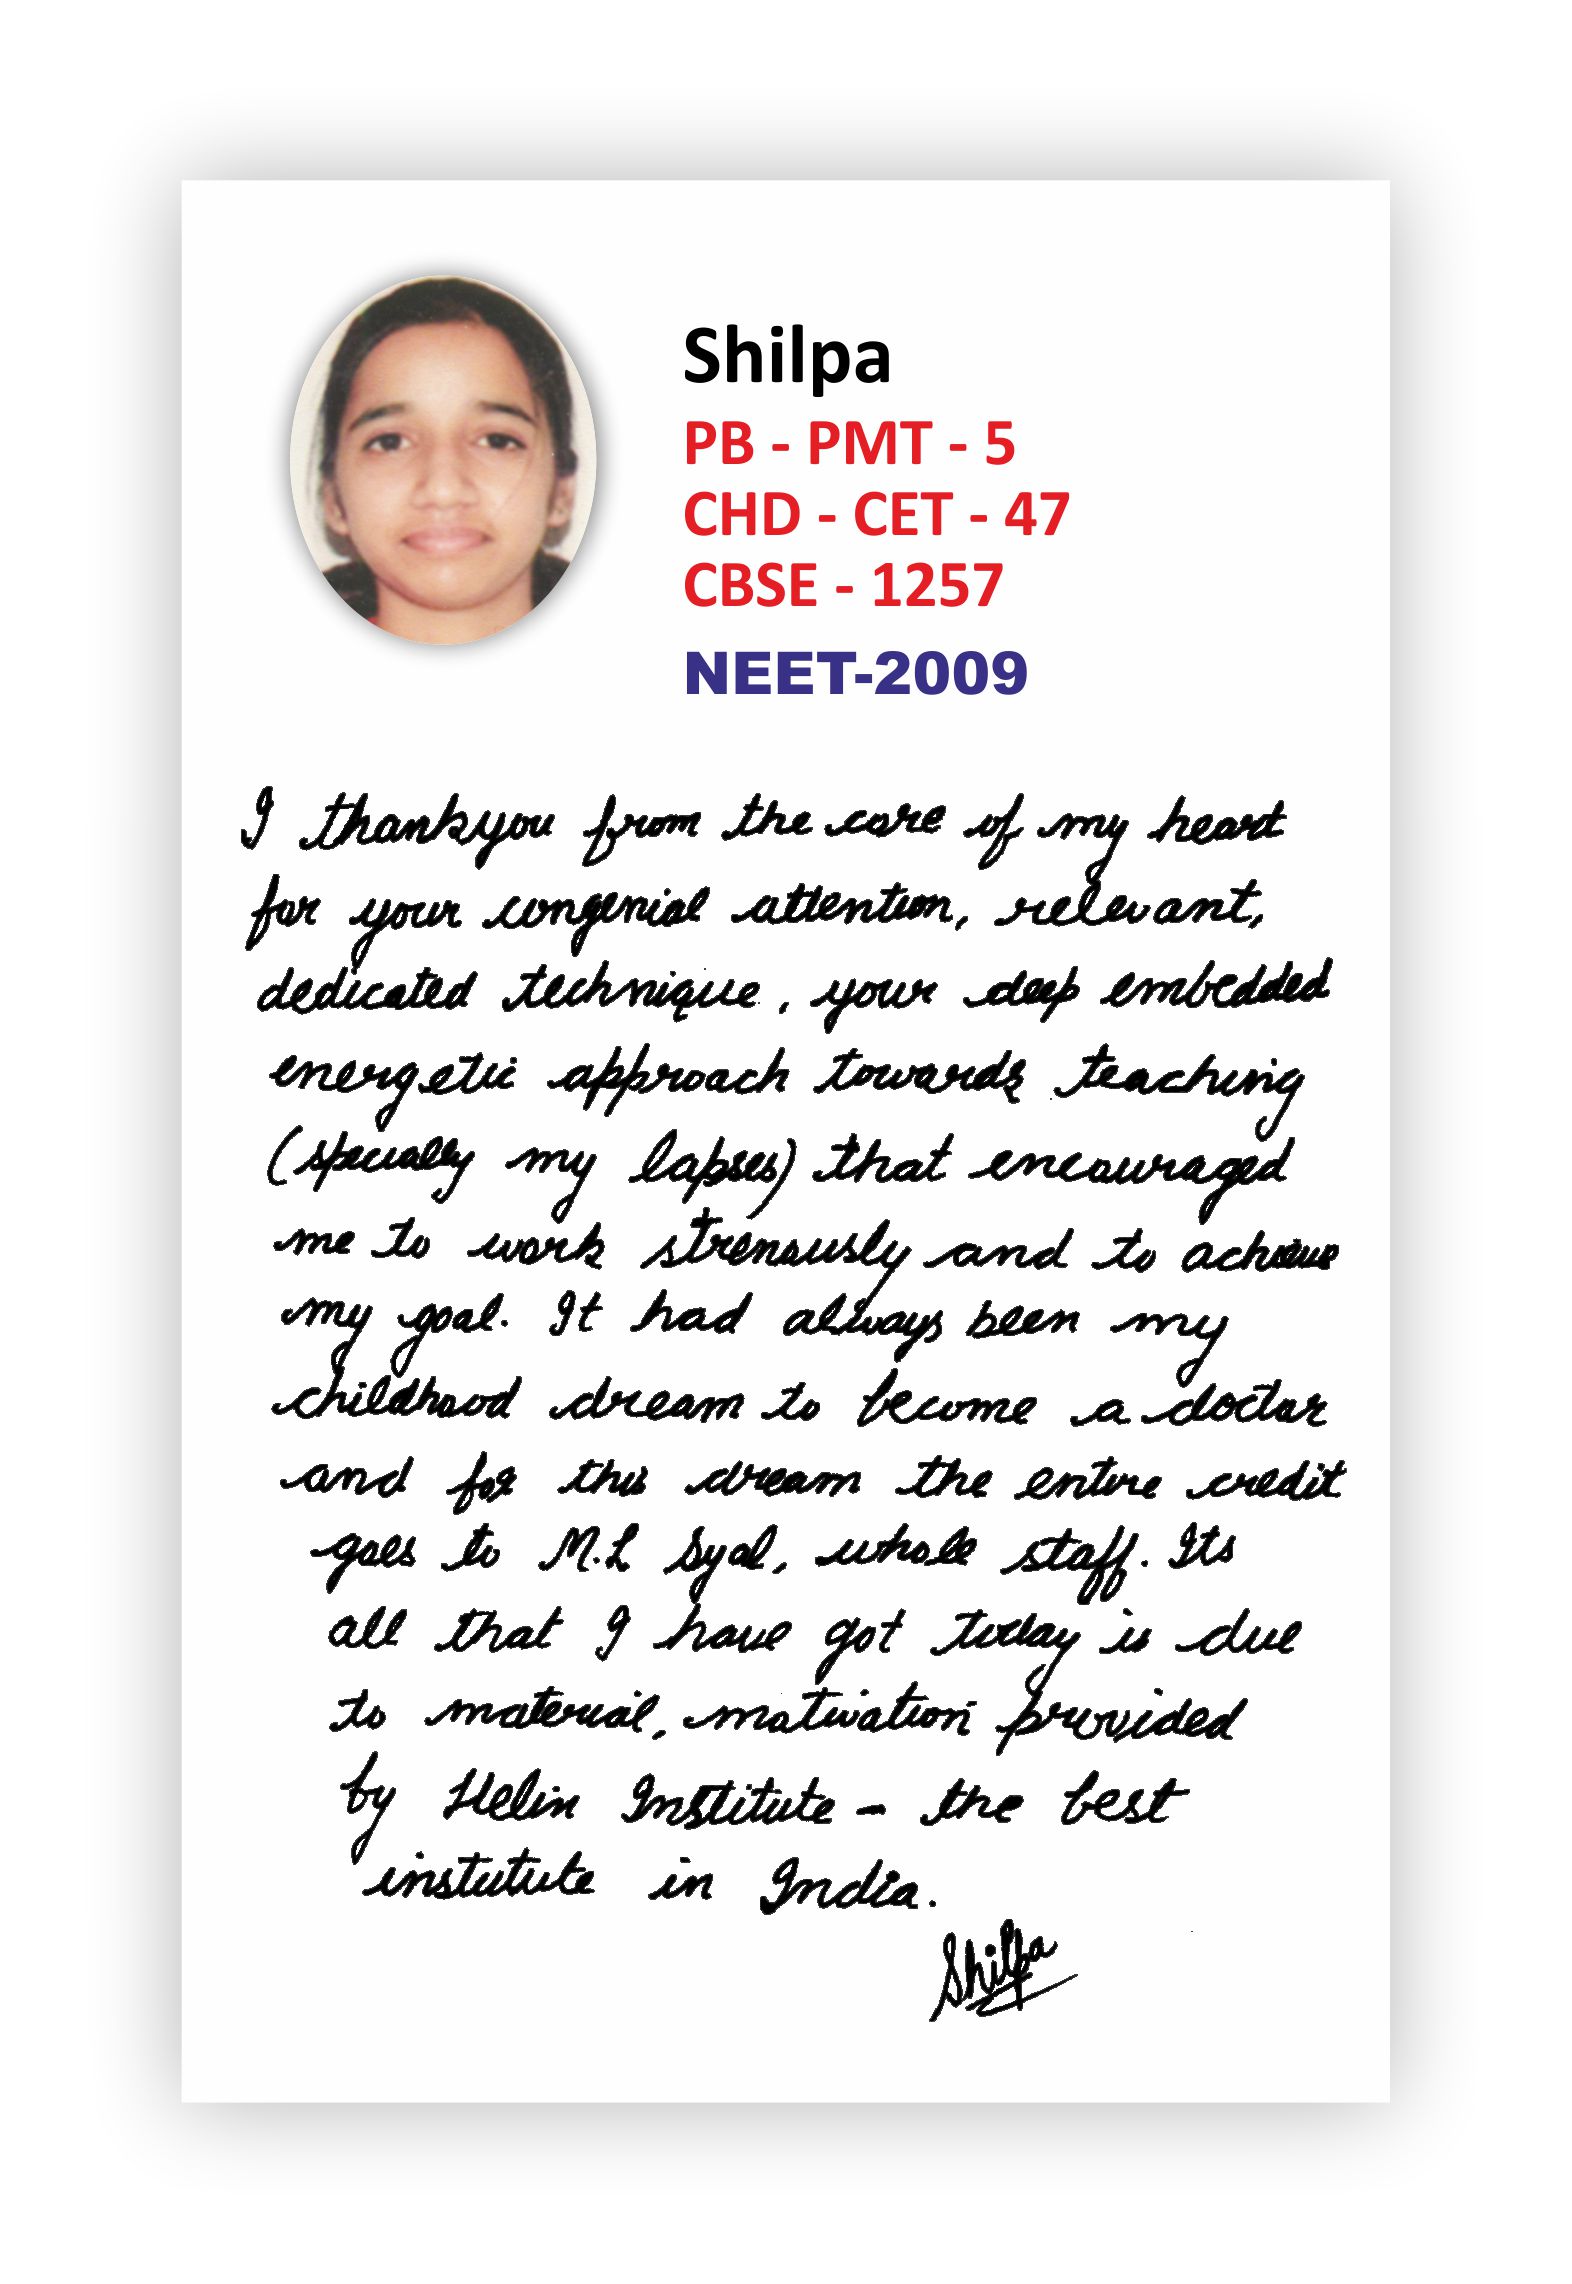 Shilpa
PB - PMT - 5
CHD - CET - 47
CBSE - 1257
NEET-2009
I thankyou from the core of my heart
for your congenial attention, relevant,
dedicated technique, your deep embedded
energetic approach towards teaching
(specially my lapses) that encouraged
me to work strenously and to achieve
my goal. It had always been my
childhood dream to become a doctor
and for this dream the entire credit
goes to M.L Syal, whole staff. Its
all that I have got today is due
to material, motivation provided
by Helix Institute - the best
institute in India.
Shilpa